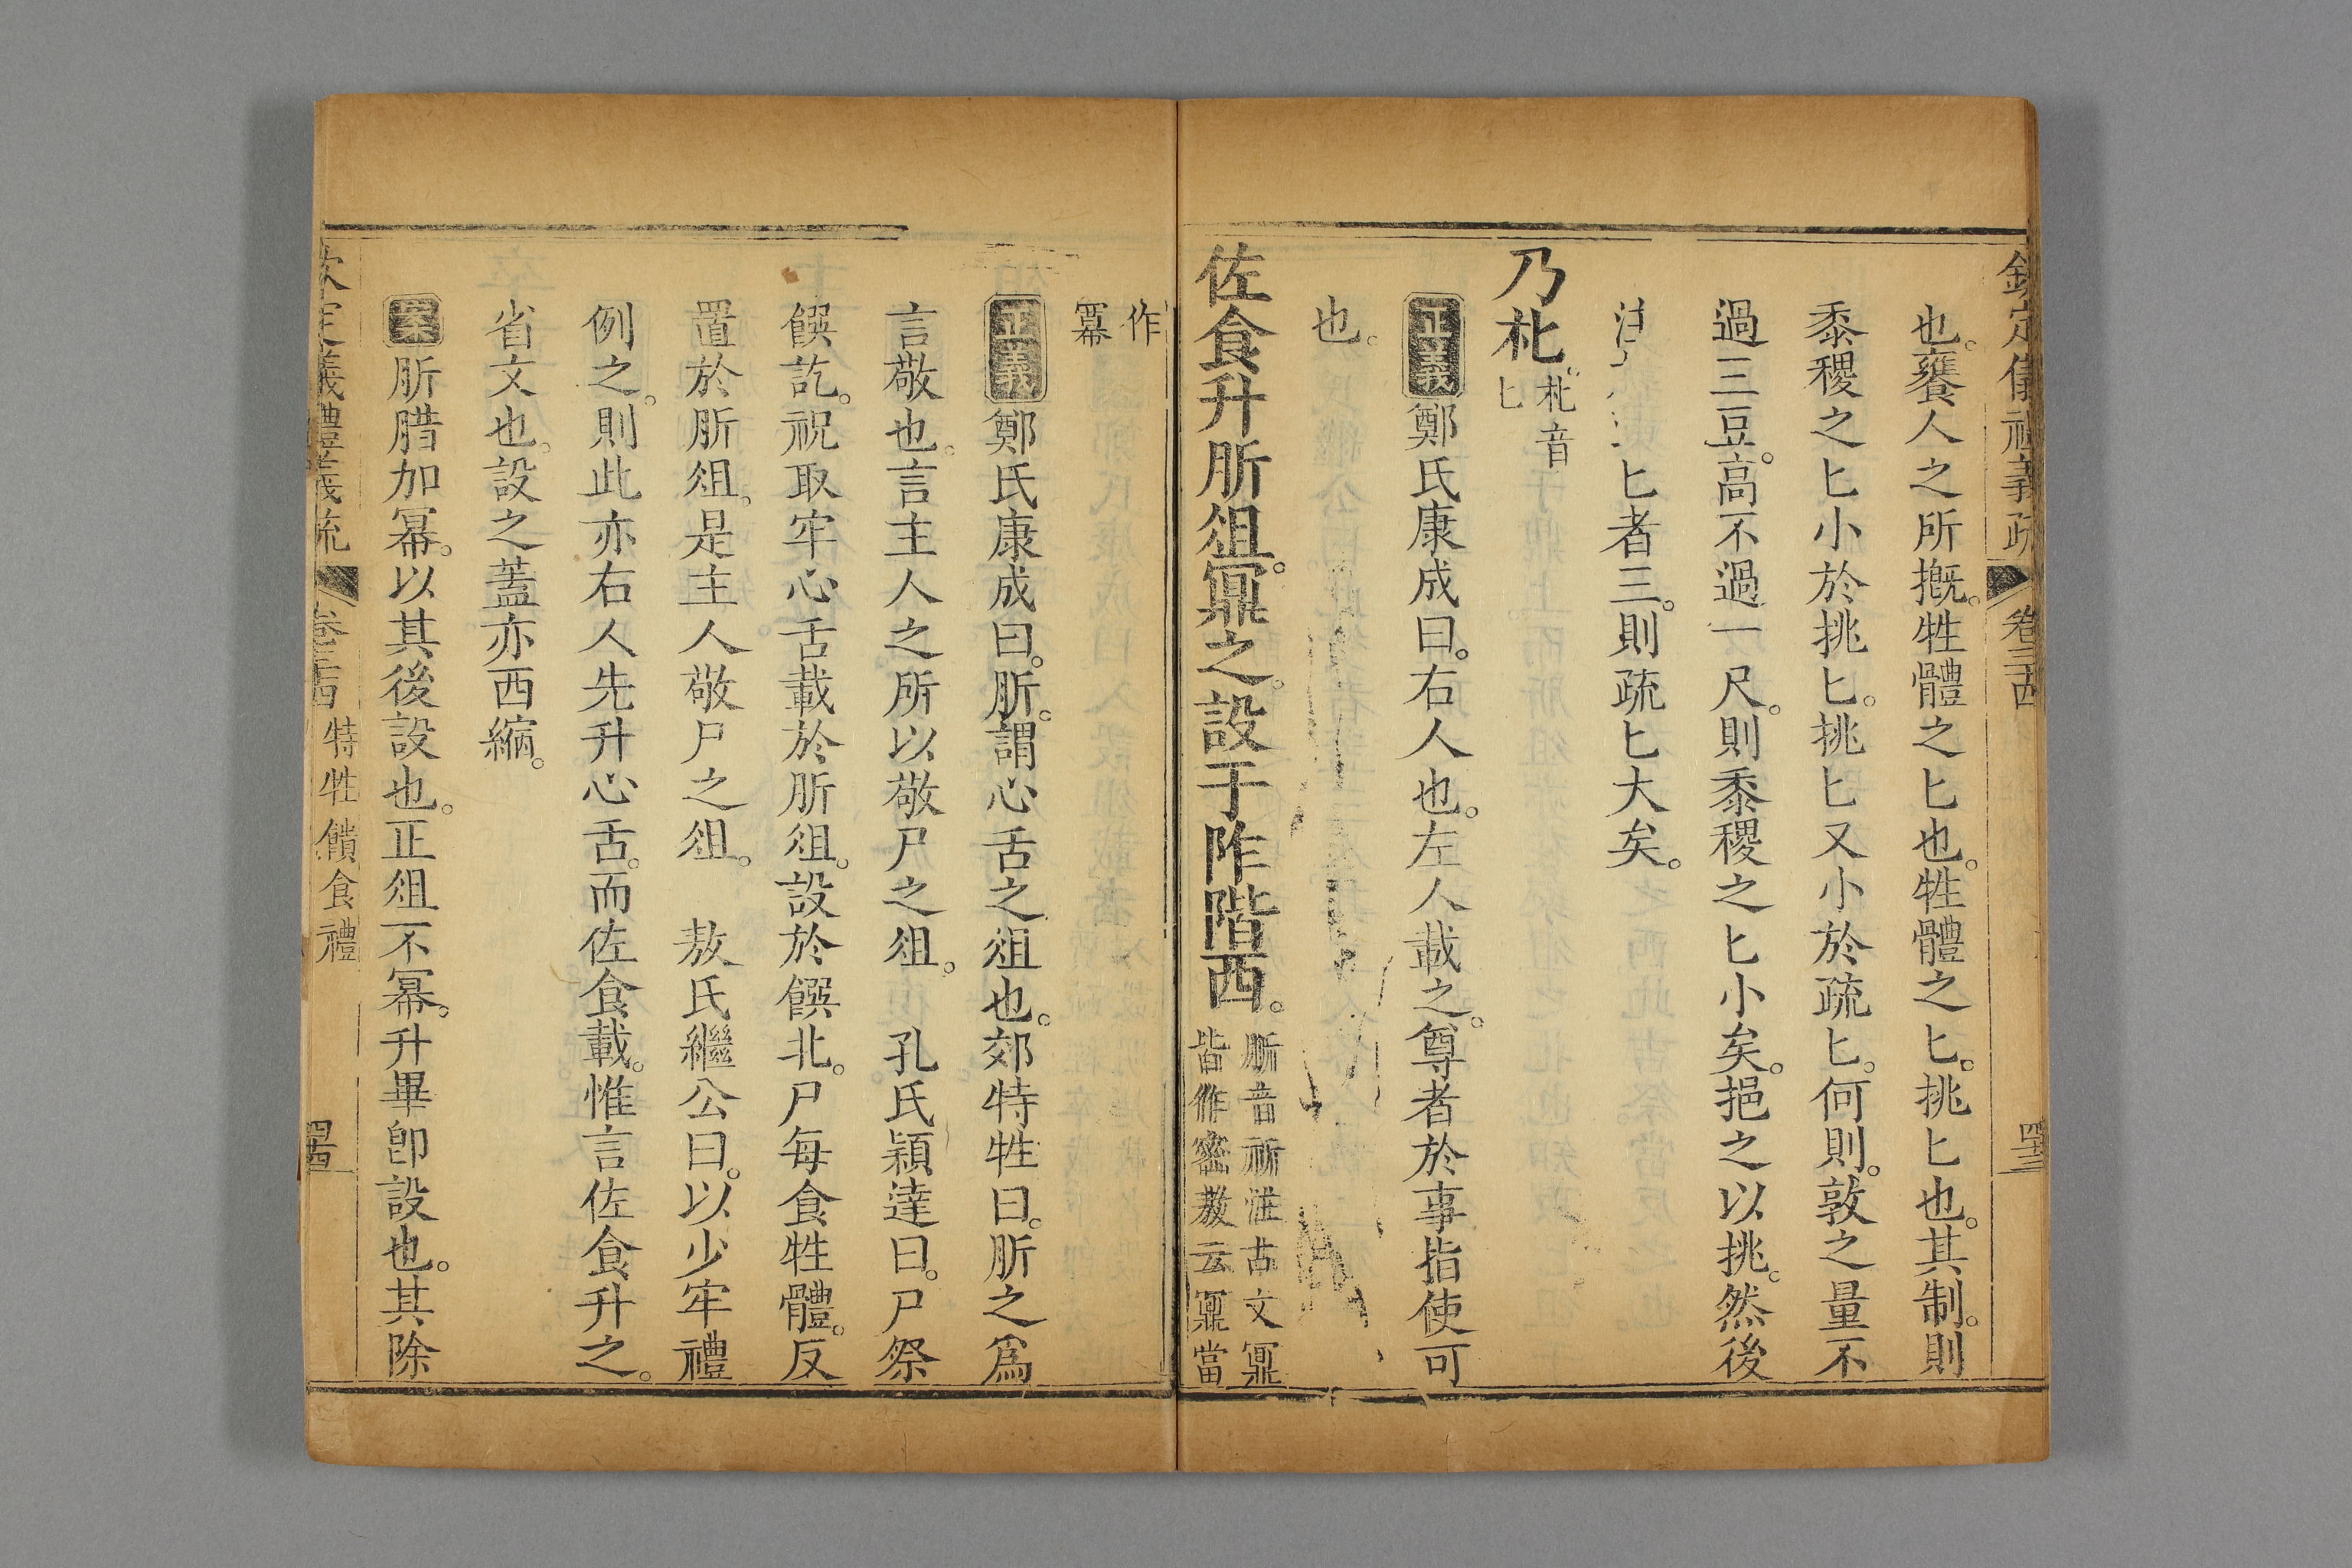 欽定儀禮義疏 卷三十四 四十三
也。饔人之所摡。牲體之匕也。牲體之匕。挑匕也。其制。則
黍稷之匕小於挑匕。挑匕又小於疏匕。何則。敦之量不
過三豆。高不過一尺。則黍稷之匕小矣。挹之以挑。然後
注 匕者三。則疏匕大矣。
乃朼。朼音匕
正義鄭氏康成曰。右人也。左人載之。尊者於事指使可
也。
佐食升肵俎。鼏之。設于阼階西。肵音祈注古文鼏皆作密敖云鼏當
作冪
正義鄭氏康成曰。肵。謂心舌之俎也。郊特牲曰。肵之爲
言敬也。言主人之所以敬尸之俎。 孔氏穎達曰。尸祭
饌訖。祝取牢心舌載於肵俎。設於饌北。尸每食牲體。反
置於肵俎。是主人敬尸之俎。 敖氏繼公曰。以少牢禮
例之。則此亦右人先升心舌。而佐食載。惟言佐食升之。
省文也。設之蓋亦西縮。
案肵腊加冪。以其後設也。正俎不冪。升畢卽設也。其除
欽定儀禮義疏 卷三十四 特牲饋食禮 四十四